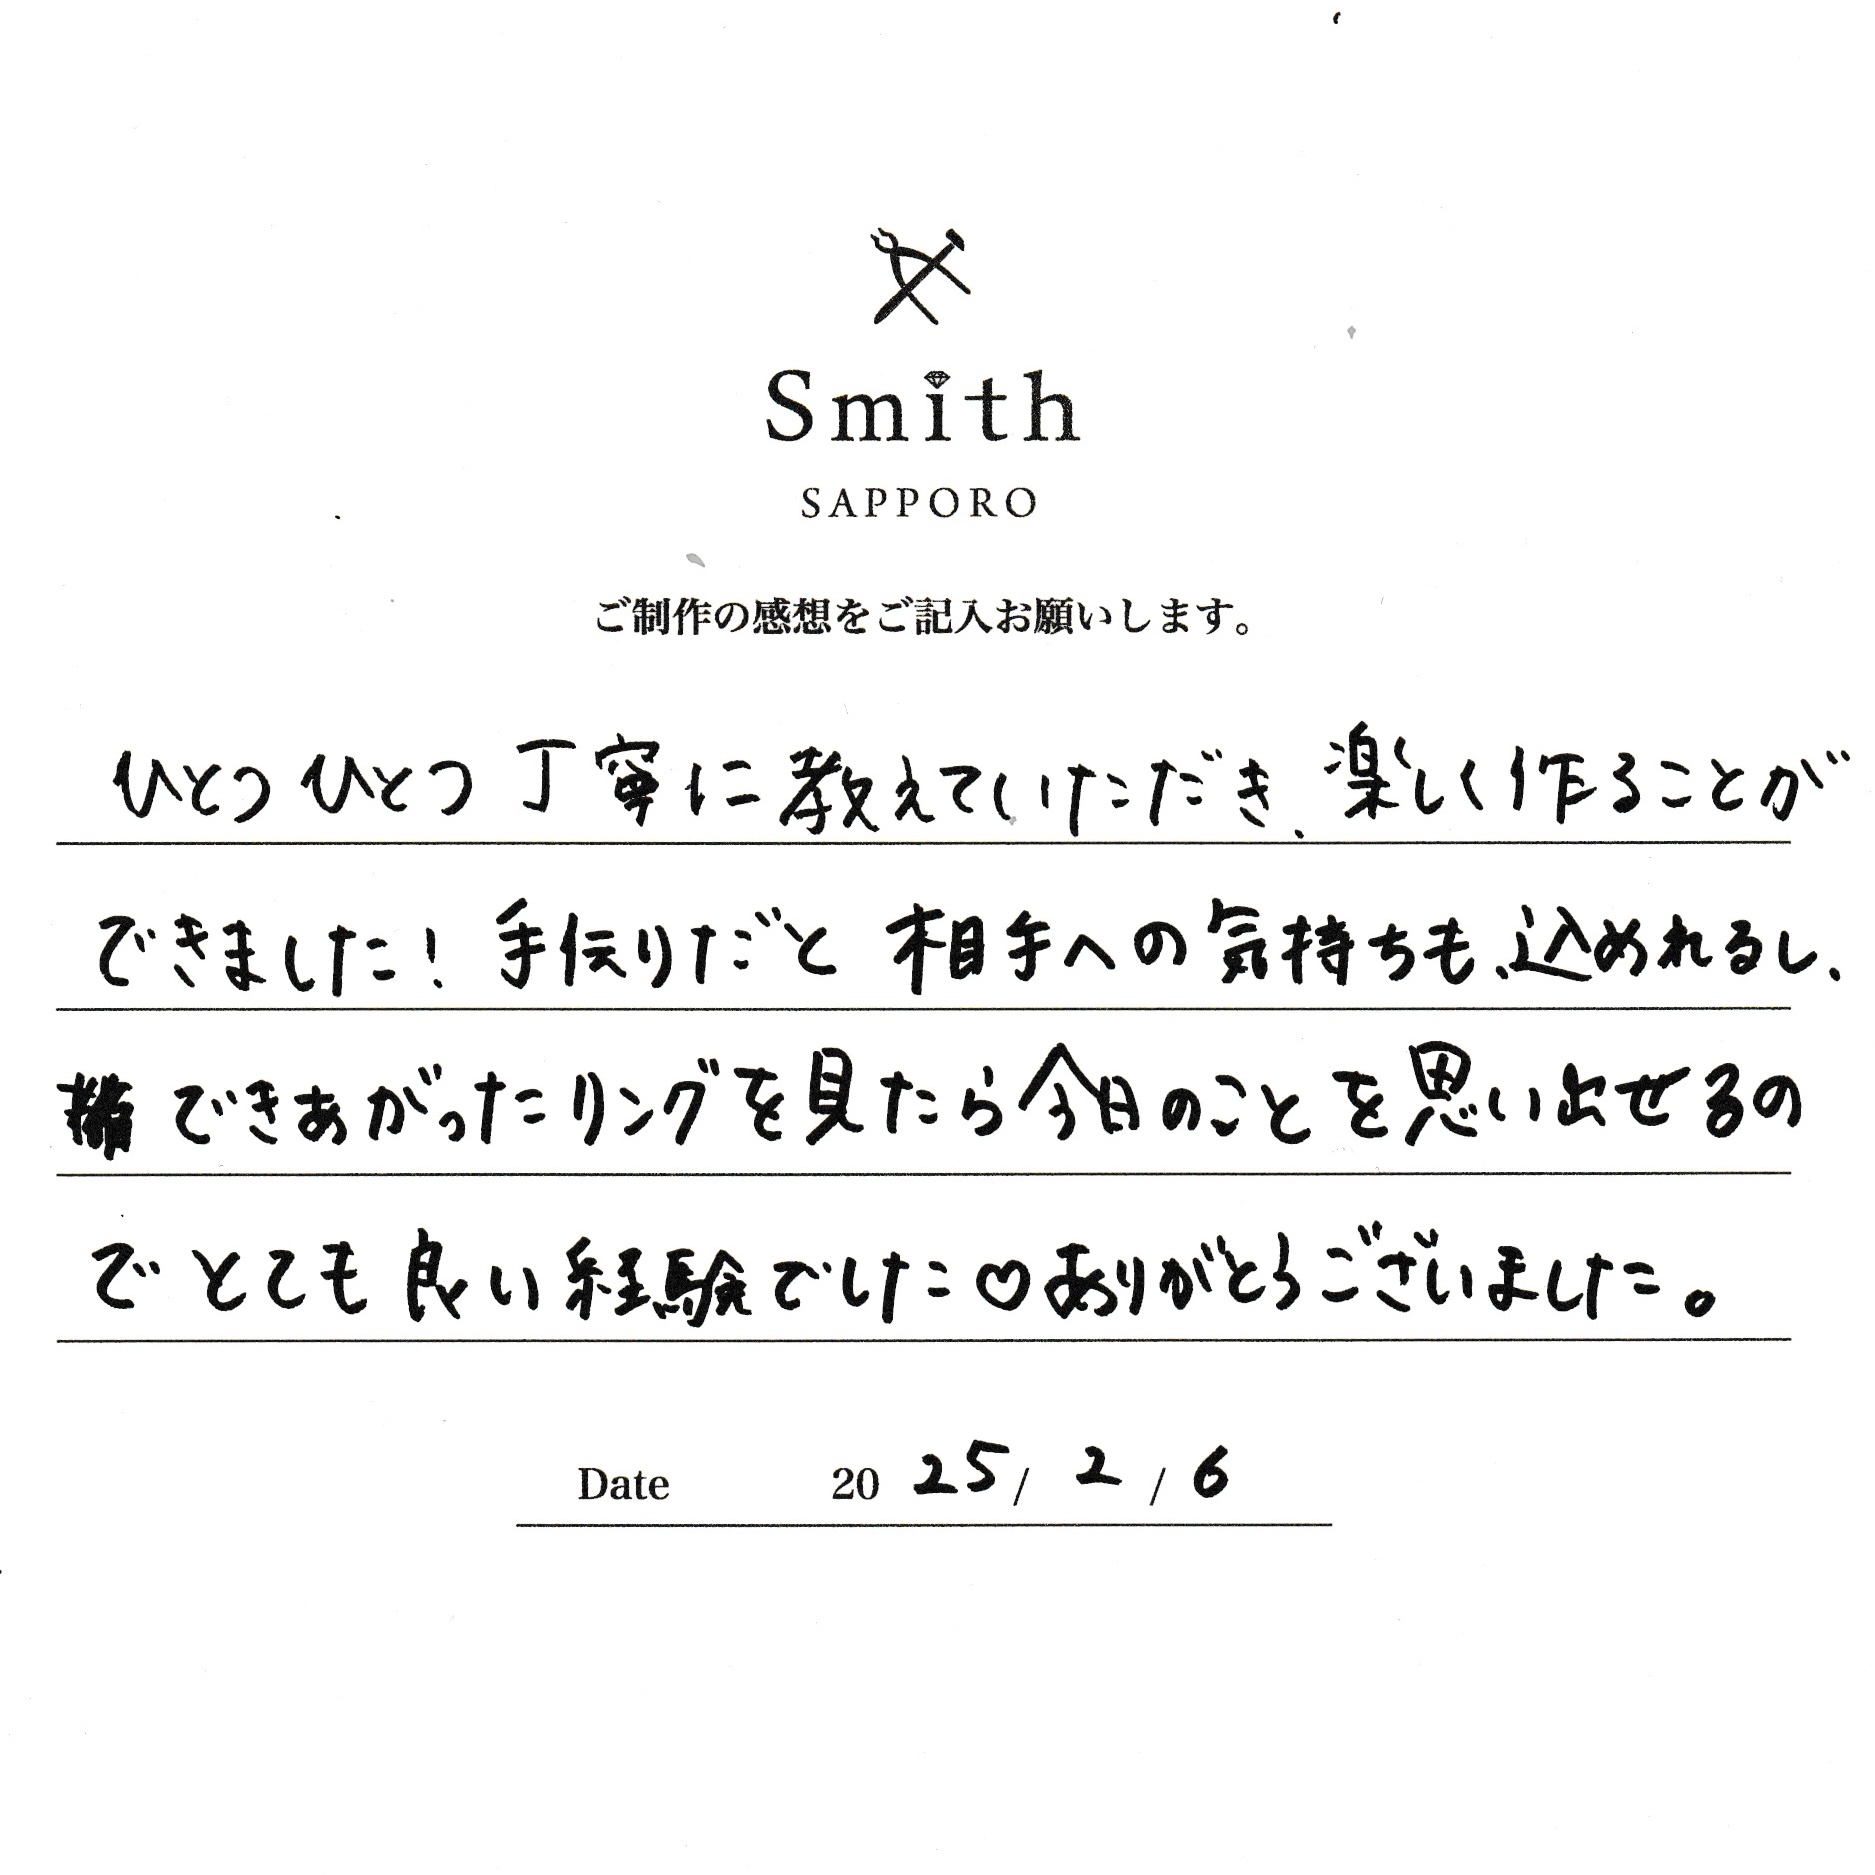 Smith
SAPPORO
ご制作の感想をご記入お願いします。
ひとつひとつ丁寧に教えていただき、楽しく作ることが
できました！手伝りだと相手への気持ちも、込めれるし、
できあがったリングを見たら今日のことを思い出せるの
でとても良い経験でした♡ありがとうございました。
Date 2025/2/6